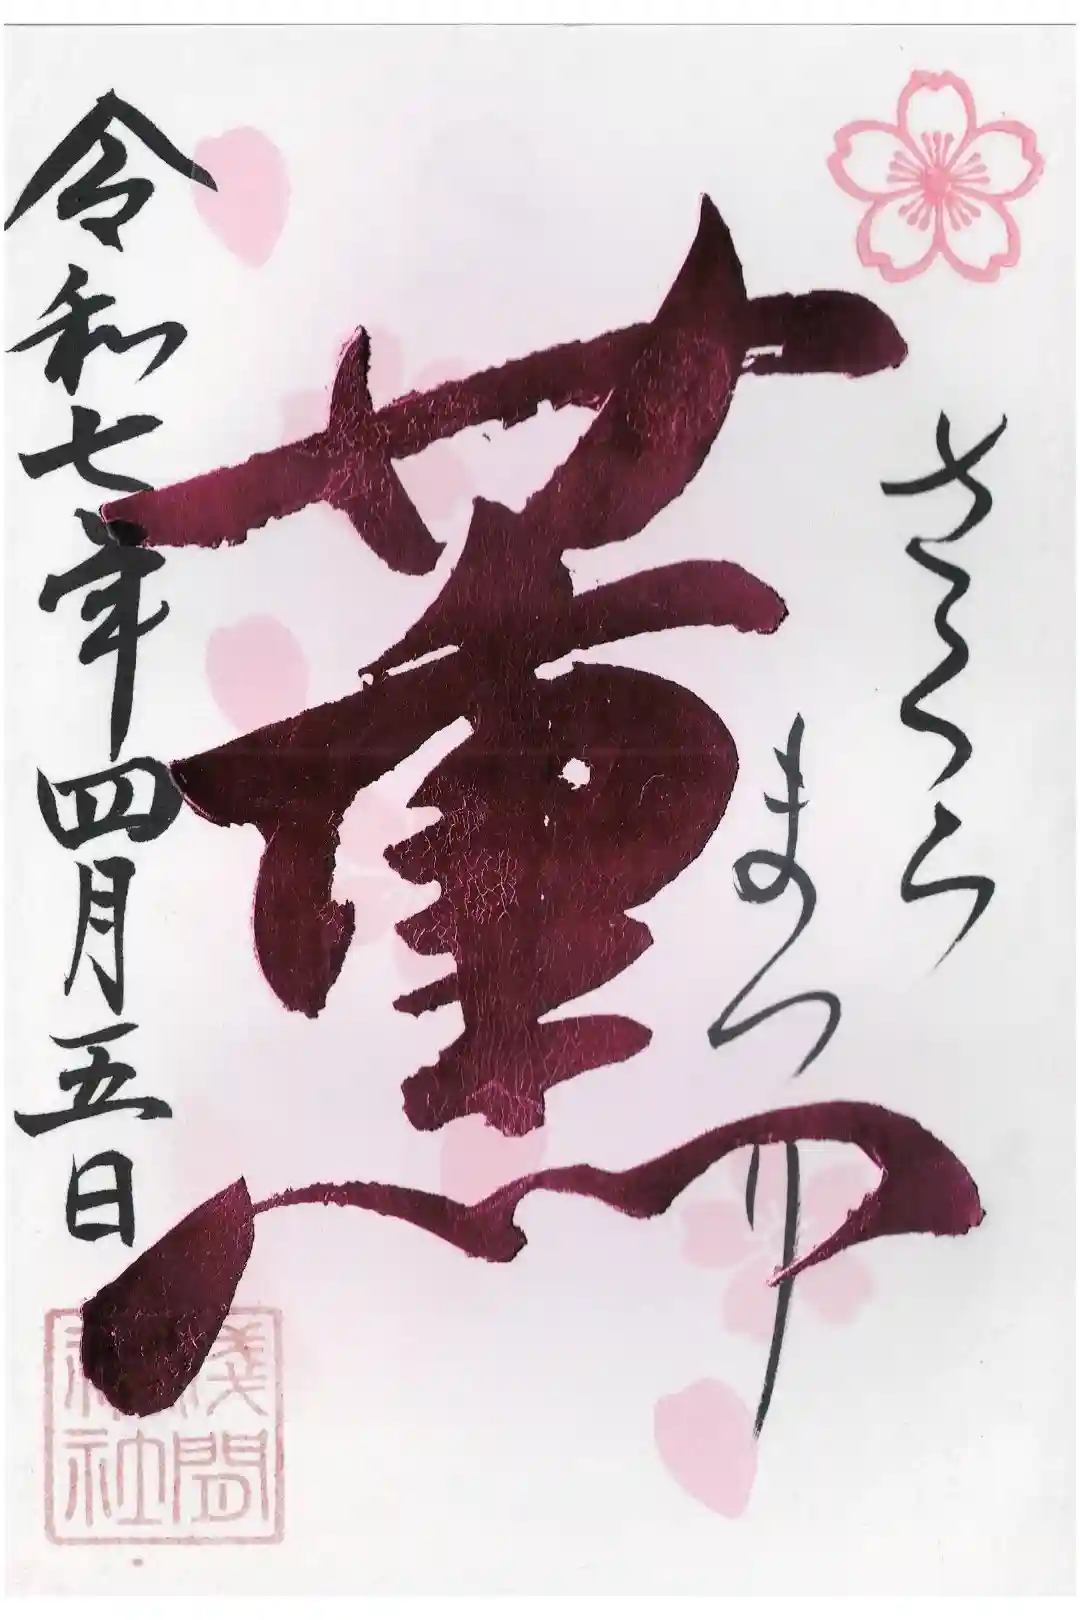 さくら
まつり
薫
令和七年四月五日
浅間神社